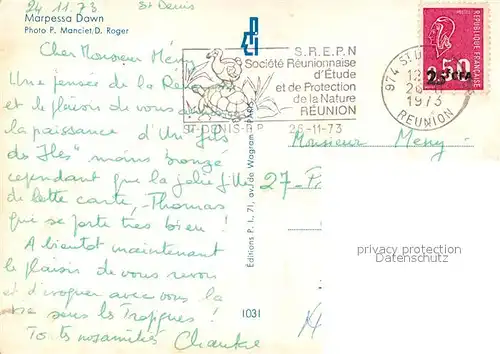 24 11 73 St Denis
Marpessa Dawn
Photo P. Manciet/D. Roger
Cher Monsieur Mény
Une pensée de la Ré
et le plaisir de vous
la naissance d'Un "fils
des Iles" moins bronzé
cependant que la jolie fille
de cette carte, - Thomas
qui se porte très bien !
A bientôt maintenant
le plaisir de vous revoir
et d'évoquer avec vous la
vie sous les Tropiques !
Toutes nos amitiés
Éditions P. I., 71, av. de Wagram - PARIS
1031
PI
S.R.E.P.N
Société Réunionnaise
d'Étude
et de Protection
de la Nature
RÉUNION
ST-DENIS-R.P. 26-11-73
974 ST DENIS
26-11
1973
REUNION
REPUBLIQUE FRANÇAISE
0.50
25F CFA
Monsieur Mény
27-
privacy protection
Datenschutz